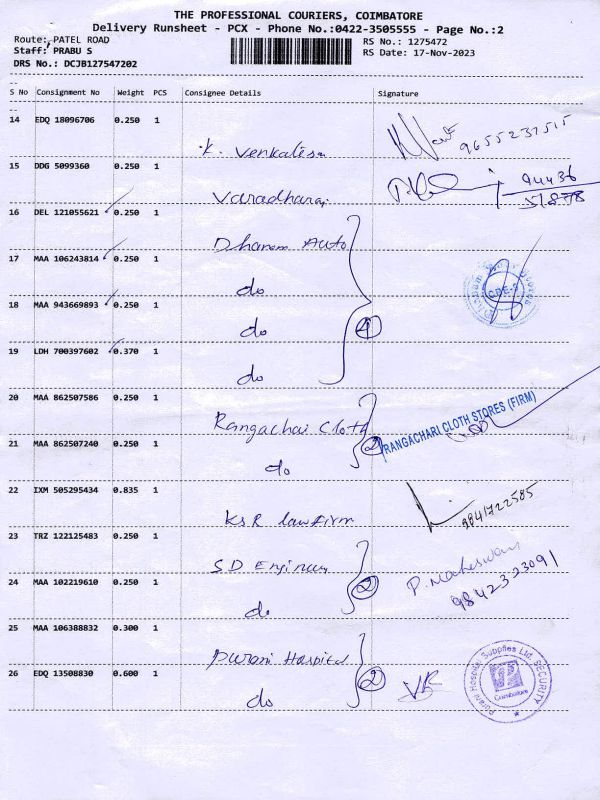 THE PROFESSIONAL COURIERS, COIMBATORE
Delivery Runsheet - PCX - Phone No.:0422-3505555 - Page No.:2
Route: PATEL ROAD
RS No.: 1275472
Staff: PRABU S
RS Date: 17-Nov-2023
DRS No.: DCJB127547202
S No Consignment No Weight PCS Consignee Details Signature
14 EDQ 18096706 0.250 1
K. Venkatesa 9655237515
15 DDG 5099360 0.250 1
Varadharaj 94436
16 DEL 121055621 0.250 1
Dhanam Auto
17 MAA 106243814 0.250 1
do
18 MAA 943669893 0.250 1
do 4
19 LDH 700397602 0.370 1
do
20 MAA 862507586 0.250 1
Rangachari Cloth 2 RANGACHARI CLOTH STORES (FIRM)
21 MAA 862507240 0.250 1
do
22 IXM 505295434 0.835 1
KSR lawfirm 9841722585
23 TRZ 122125483 0.250 1
S D Enginee
24 MAA 102219610 0.250 1
do 2 P. Maheswari
9842323091
25 MAA 106388832 0.300 1
Purani Hospital
26 EDQ 13508830 0.600 1
do 2 Purani Hospital Supplies Ltd. SECURITY
Coimbatore